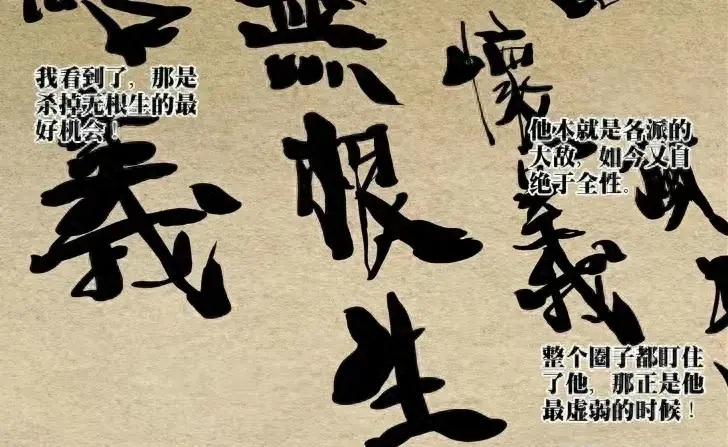 我看到了，那是
杀掉无根生的最
好机会！
他本就是各派的
大敌，如今又自
绝于全性。
整个圈子都盯住
了他，那正是他
最虚弱的时候！
無根生
懷義
義